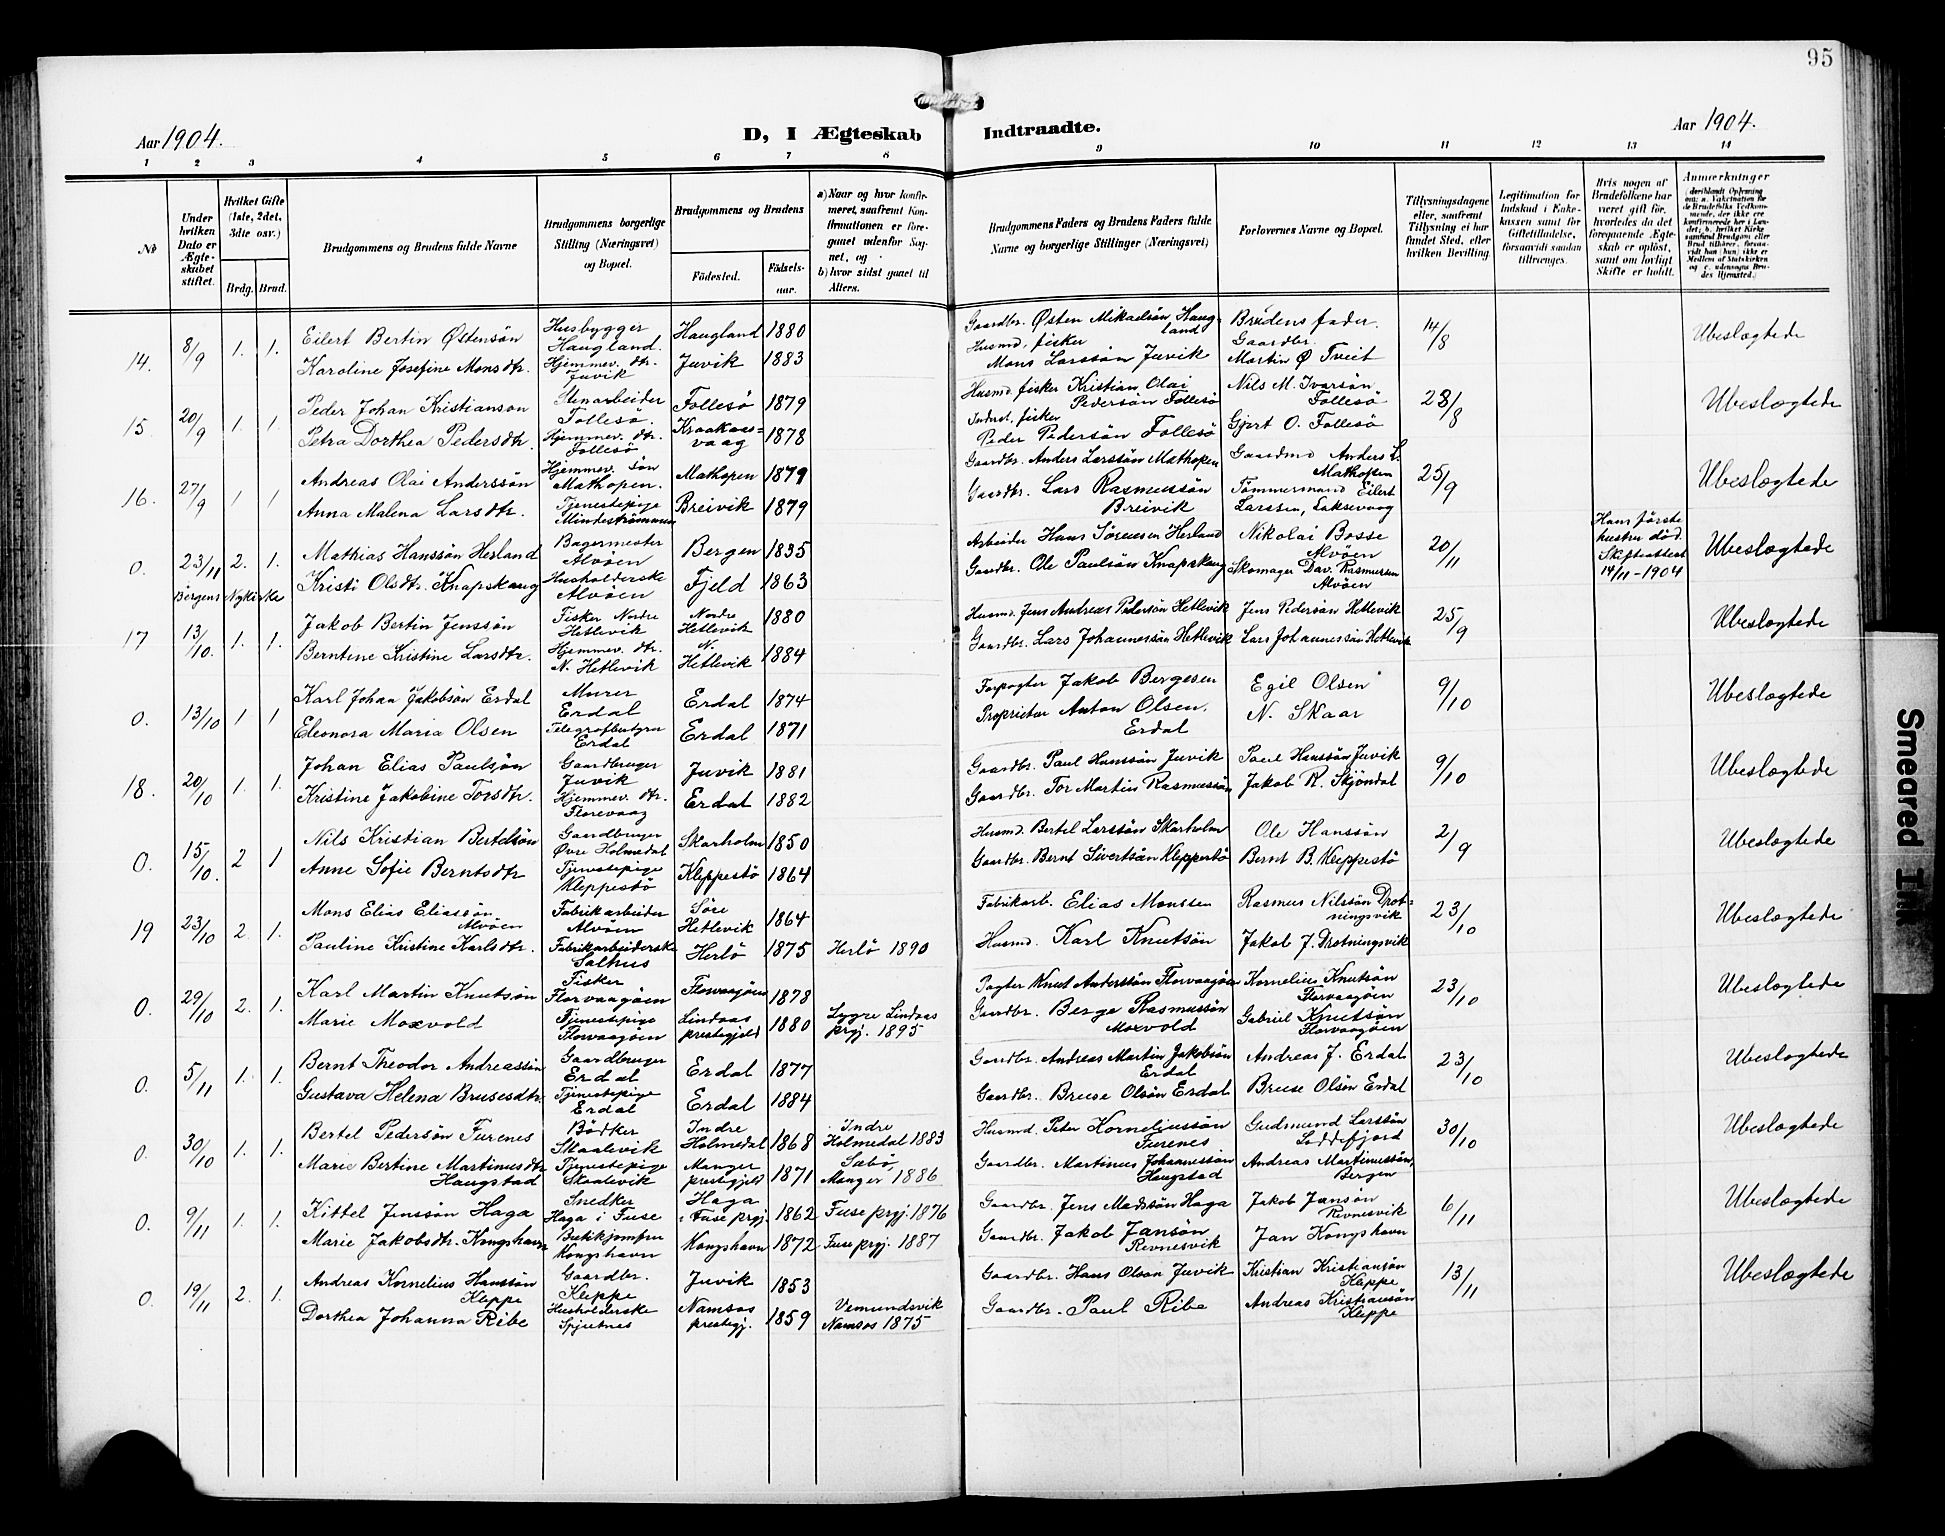 95
Aar 1904.
D, I Ægteskab Indtraadte.
Aar 1904.
1 2 3 4 5 6 7 8 9 10 11 12 13 14
No
Under hvilken Dato er Ægteskabet stiftet.
Hvilket Gifte (1ste, 2det, 3die osv.)
Brdg. Brud.
Brudgommens og Brudens fulde Navne
Brudgommens borgerlige Stilling (Næringsvei) og Bopæl.
Brudgommens og Brudens
Fødested. Fødsels-aar.
a) Naar og hvor konfirmeret, saafremt Konfirmationen er foregaaet udenfor Sognet, og
b) hvor sidst gaaet til Alters.
Brudgommens Faders og Brudens Faders fulde Navne og borgerlige Stillinger (Næringsvei)
Forlovernes Navne og Bopæl.
Tillysningsdagene eller, saafremt Tillysning ei har fundet Sted, efter hvilken Bevilling.
Legitimation for Indskud i Enkekassen samt for Giftetilladelse, forsaavidt saadan tiltrænges.
Hvis nogen af Brudefolkene har været gift før, hvorledes da det foregaaende Ægteskab er opløst, samt om lovligt Skifte er holdt.
Anmerkninger
14. 8/9 1. 1. Eilert Bertin Østensøn Husbygger Haugland. Haugland 1880 Gaardbr. Østen Mikaelsøn Haugland Brudens fader. 14/8 Ubeslægtede
Karoline Josefine Monsdtr. Hjemmev. dtr. Juvik Juvik 1883 Husmd, fisker Mons Larssøn Juvik Gaardbr. Martin Ø Tveit
15. 20/9 1. 1. Peder Johan Kristianson Stenarbeider Follesø. Follesø 1879 Husmd. fisker Kristian Olai Pedersøn Follesø Nils M. Ivarsøn Follesø 28/8 Ubeslægtede
Petra Dorthea Pedersdtr. Hjemmev. dtr. Follesø Kraakaasvaag 1878 Indrst. fisker Peder Pedersøn Follesø Gjert O. Follesø
16. 27/9 1 1 Andreas Olai Anderssøn Hjemmev. søn Mathopen. Mathopen 1879 Gaardbr. Anders Larssøn Mathopen Gaardmd Anders L. Mathopen 25/9 Ubeslægtede
Anna Malena Larsdtr. Tjenestepige Mindeströmmen Breivik 1879 Gaardbr. Lars Rasmussøn Breivik Tømmermand Eilert Larssen, Laksevaag
0. 23/11 2. 1. Mathias Hanssøn Herland Bagermester Alvøen Bergen 1835 Arbeider Hans Sørensen Herland Nikolai Bosse Alvøen 20/11 Hans første hustru død. Skifteattest 14/11-1904 Ubeslægtede
Bergens Nykirke Kristi Olsdtr. Knapskaug Husholderske Alvøen Fjeld 1863 Gaardbr. Ole Paulsøn Knapskaug Skomager Dav. Rasmussen Alvøen
17 13/10. 1. 1. Jakob Bertin Jenssøn Fisker Nordre Hetlevik Nordre Hetlevik 1880 Husmd. Jens Andreas Pedersøn Hetlevik Jens Pedersøn Hetlevik 25/9 Ubeslægtede
Berntine Kristine Larsdtr. Hjemmev. dtr. N. Hetlevik N. Hetlevik 1884 Gaardbr. Lars Johannessøn Hetlevik Lars Johannessøn Hetlevik
0. 13/10 1 1 Karl Johan Jakobsøn Erdal Murer Erdal Erdal 1874 Forpagter Jakob Bergesen Egil Olsen 9/10 Ubeslægtede
Eleonora Maria Olsen Telegrafbestyrer Erdal Erdal 1871 Proprietær Anton Olsen. Erdal N. Skaar
18. 20/10 1. 1. Johan Elias Paulsøn Gaardbruger Juvik Juvik 1881 Gaardbr. Paul Hanssøn Juvik Paul Hanssøn Juvik 9/10 Ubeslægtede
Kristine Jakobine Torsdtr. Hjemmev. dtr. Florevaag Erdal 1882 Gaardbr. Tor Martin Rasmussøn Jakob R. Skjøndal
0. 15/10. 2 1 Nils Kristian Bertelsøn Gaardbruger Øvre Holmedal Skarholm 1850 Husmd. Bertel Larssøn Skarholm Ole Hanssøn 2/9 Ubeslægtede
Anne Sofie Berntsdtr Tjenestepige Kleppestø Kleppestø 1864 Gaardbr. Bernt Sivertsøn Kleppestø Bernt B. Kleppestø
19 23/10 2. 1. Mons Elias Eliassøn Alvøen Fabrikarbeider Alvøen Søre Hetlevik 1864 Fabrikarb. Elias Monssen Rasmus Nilssøn Drotningsvik 23/10 Ubeslægtede
Pauline Kristine Karlsdtr. Fabrikarbeiderske Salhus Herlø 1875 Herlø 1890 Husmd. Karl Knutsøn Jakob J. Drotningsvik
0. 29/10 2. 1. Karl Martin Knutsøn Fisker Florvaagøen Florvaagøen 1878 Pagter Knut Anderssøn Florvaagøen Kornelius Knutsøn Florvaagøen 23/10 Ubeslægtede
Marie Moxvold Tjenestepige Florvaagøen Lindaas prestegjeld 1880 Lygre Lindaas prgj. 1895 Gaardbr. Berge Rasmussøn Moxvold Gabriel Knutsøn Florvaagøen
0. 5/11 1. 1. Bernt Theodor Andreassøn Gaardbruger Erdal Erdal 1877 Gaardbr. Andreas Martin Jakobsøn Erdal Andreas J. Erdal 23/10 Ubeslægtede
Gustava Helena Brusesdtr. Tjenestepige Erdal Erdal 1884 Gaardbr. Bruse Olsøn Erdal Bruse Olsøn Erdal
0. 30/10 1. 1. Bertel Pedersøn Furenes Bødker Skaalevik Indre Holmedal 1868 Indre Holmedal 1883 Husmd. Peter Korneliussøn Furenes Gudmund Larssøn Loddefjord 30/10 Ubeslægtede
Marie Bertine Martinusdtr Haugstad Tjenestepige Skaalevik Manger prestegjeld 1871 Sæbø, Manger 1886 Gaardbr. Martinus Johannessøn Haugstad Andreas Martinussøn, Bergen
0. 9/11 1. 1. Kittel Jenssøn Haga Snedker Haga i Fuse Haga i Fuse prgj. 1862 Fuse prgj. 1876 Gaardbr. Jens Madssøn Haga Jakob Jansøn Revnesvik 6/11 Ubeslægtede
Marie Jakobsdtr. Kongshavn Butikjomfru Kongshavn Kongshavn 1872 Fuse prgj. 1887 Gaardbr. Jakob Jansøn Revnesvik Jan Kongshavn
0. 19/11 2. 1. Andreas Kornelius Hanssøn Kleppe Gaardbr. Kleppe Juvik 1853 Gaardbr. Hans Olson Juvik Kristian Kristiansøn Kleppe 13/11 Ubeslægtede
Dorthea Johanna Ribe Husholderske Spjutnes Namsos prestegj. 1859 Vemundsvik Namsos 1875 Gaardbr. Paul Ribe Andreas Kristiansøn Kleppe
Smeared Ink